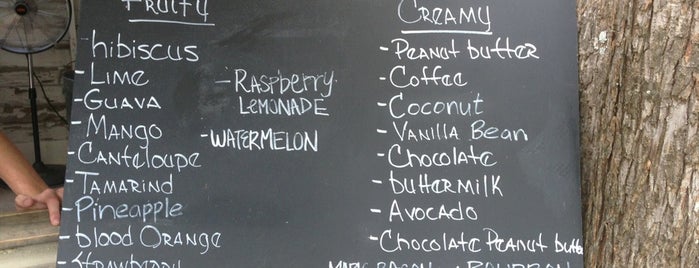 Fruity
hibiscus
- Lime
- Guava
- Mango
- Canteloupe
- Tamarind
- Pineapple
- blood Orange
- Strawberry
- Raspberry
Lemonade
- Watermelon
Creamy
- Peanut butter
- Coffee
- Coconut
- Vanilla Bean
- Chocolate
- buttermilk
- Avocado
- Chocolate Peanut butte
Bacon
Bourbon